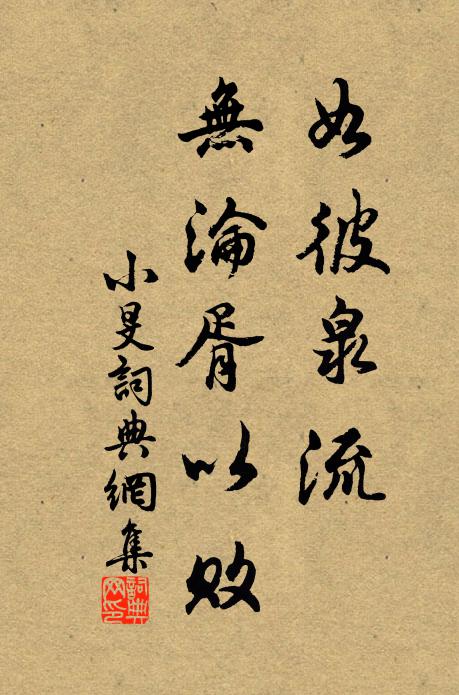 如彼泉流
無淪胥以敗
小旻詞典網集
詞典
网印